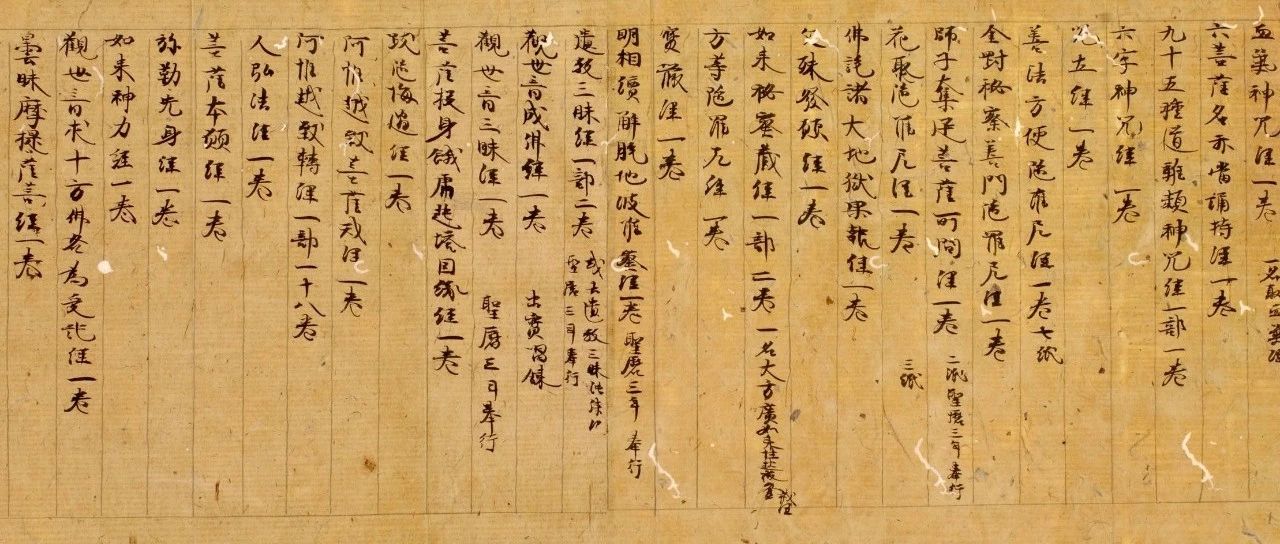 血氣神呪經一卷
六菩薩名亦當誦持經一卷
九十五種道雜類神呪經一部一卷
六字神呪經一卷
呪立經一卷
善法方便陁羅尼經一卷七紙
金對祕蜜善門陁羅尼經一卷
師子奮迅菩薩所問經一卷 二紙聖曆三年奉行
花聚陁羅尼經一卷 三紙
佛說諸大地獄果報經一卷
文殊發願經一卷
如来祕蜜蔵經一部二卷一名大方廣如来性起
方等陁羅尼經一卷
寶蔵經一卷
明相續解脱地波羅蜜經一卷 聖曆三年奉行
遺教三昧經一部二卷 或云遺教三昧法律經 聖曆三年奉行
觀世音成佛經一卷 出寶唱錄
觀世音三昧經一卷 聖曆三年奉行
菩薩投身餓虎起塔因緣經一卷
陁悔過經一卷
阿惟越致菩薩戒經一卷
阿惟越致轉經一部一十八卷
人弘法經一卷
菩薩本願經一卷
弥勒光身經一卷
如来神力經一卷
觀世音求十方佛各為受記經一卷
曇昧摩提菩薩經一卷